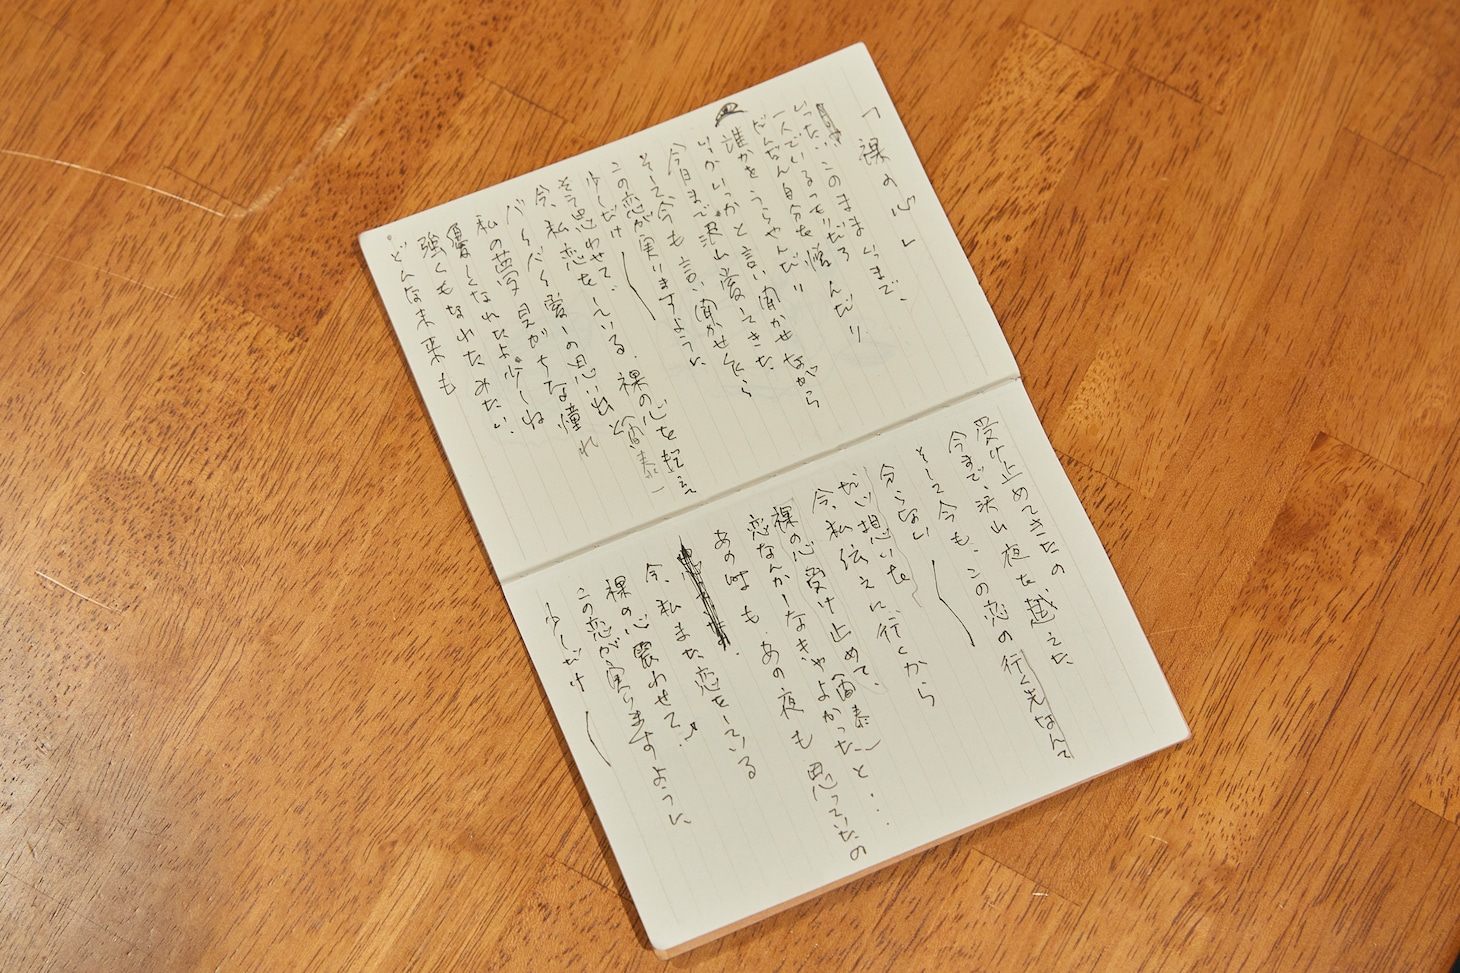 「裸の心」
いったいこのままいつまで、
一人でいるつもりだろ
だんだん自分を憎んだり
誰かをうらやんだり
いつかいつかと言い聞かせながら
今日まで沢山愛してきた
そして今も言い聞かせながら
この恋が実りますように
少しだけ
そう思わせて、
今、私恋をしている。裸の心を抱えて
バイバイ愛しの思い出と(間奏ー
私の夢見がちな憧れ
優しくなれたよ。少しね
強くもなれたみたい。
どんな未来も
受け止めてきたの
今まで、沢山夜を越えた
そして今も、この恋の行く先なんて
分らない
ただ想いを
今、私伝えに行くから
裸の心受け止めて、(間奏ー)
恋なんかしなきゃよかったと・・
あの時も、あの夜も思っていたの
今、私また恋をしている
裸の心震わせて、
この恋が実りますように
少しだけ